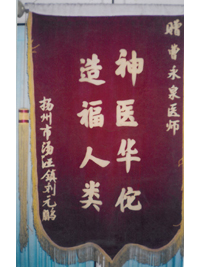 赠曹永泉医师
神医华佗
造福人类
扬州市汤汪镇刘元鹏